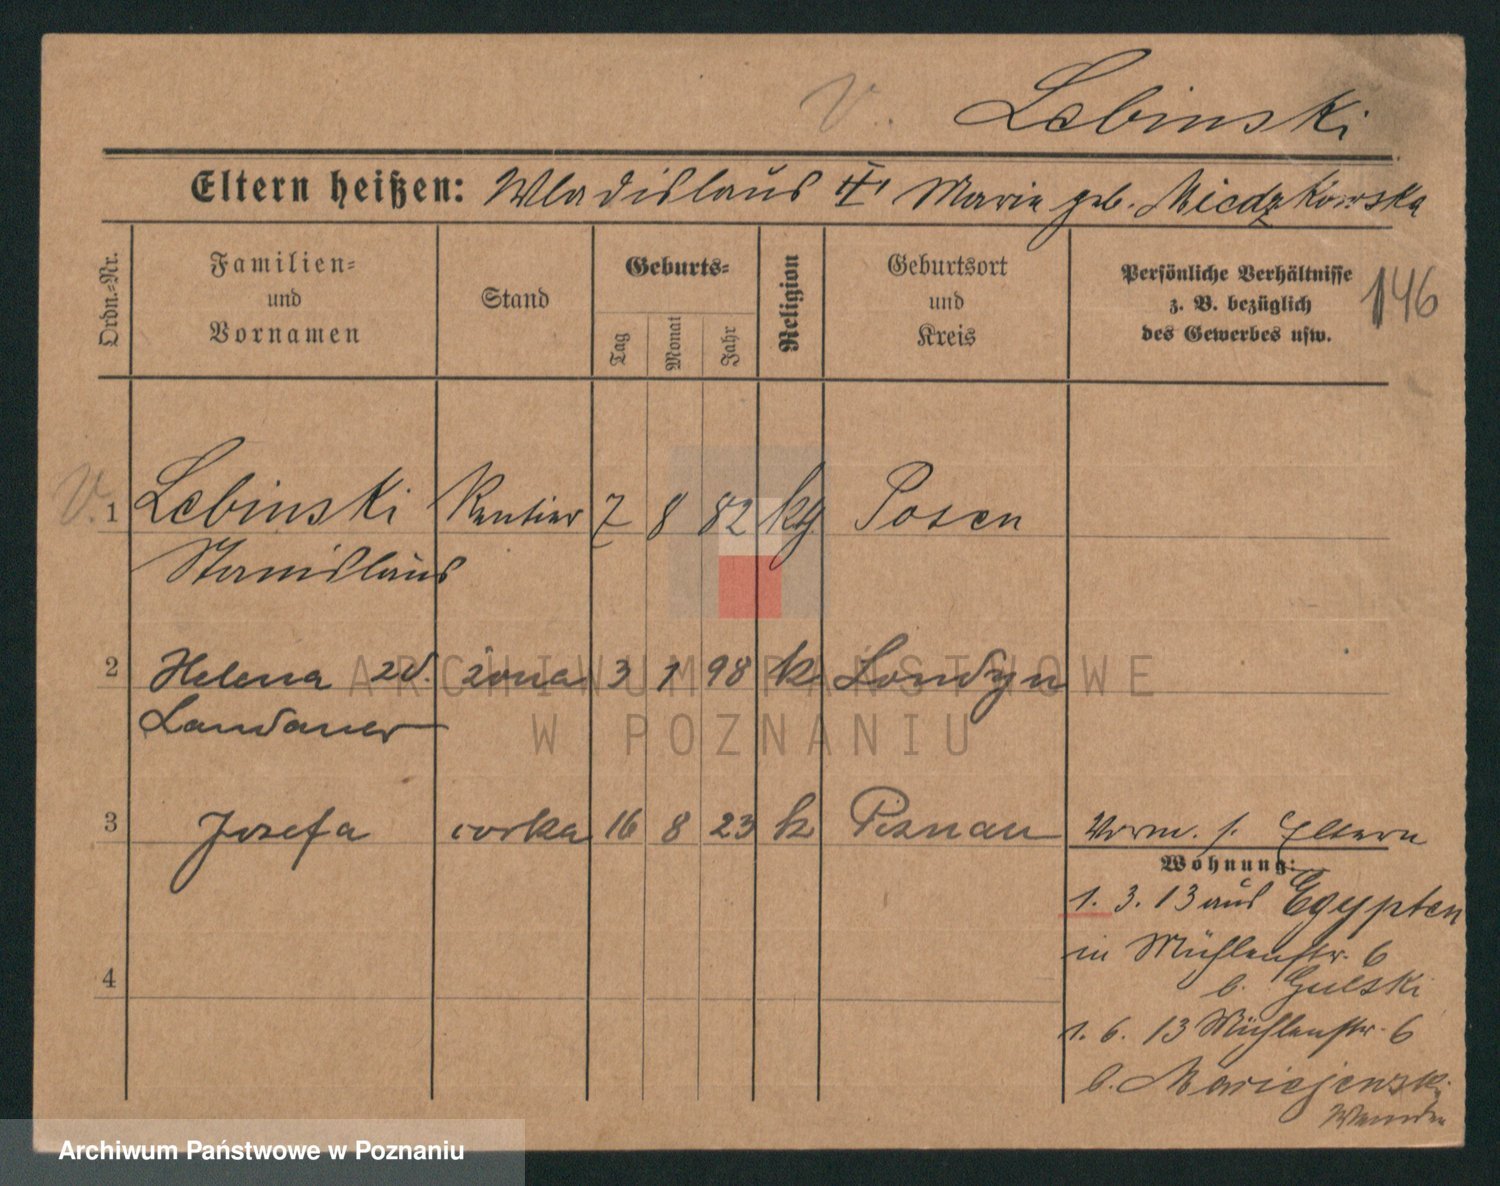 v. Lebinski
Eltern heißen: Wladislaus † Marie geb. Miedzkowska
Ordn.-Nr.
Familien-
und
Vornamen
Stand
Geburts-
Tag
Monat
Jahr
Religion
Geburtsort
und
Kreis
Persönliche Verhältnisse
z. B. bezüglich
des Gewerbes usw.
146
v. 1 Lebinski Rentier 7 8 82 kth Posen
Stanislaus
2 Helena zd. żona 3 1 98 k. Londyn
Landauer
3 Jozefa corka 16 8 23 k Poznań
4
Vorm. s. Eltern
Wohnung:
1. 3. 13 aus Egypten
in Mühlenstr. 6
b. Gulski
1. 6. 13 Mühlenstr. 6
b.
Wenden
ARCHIWUM PAŃSTWOWE
W POZNANIU
Archiwum Państwowe w Poznaniu